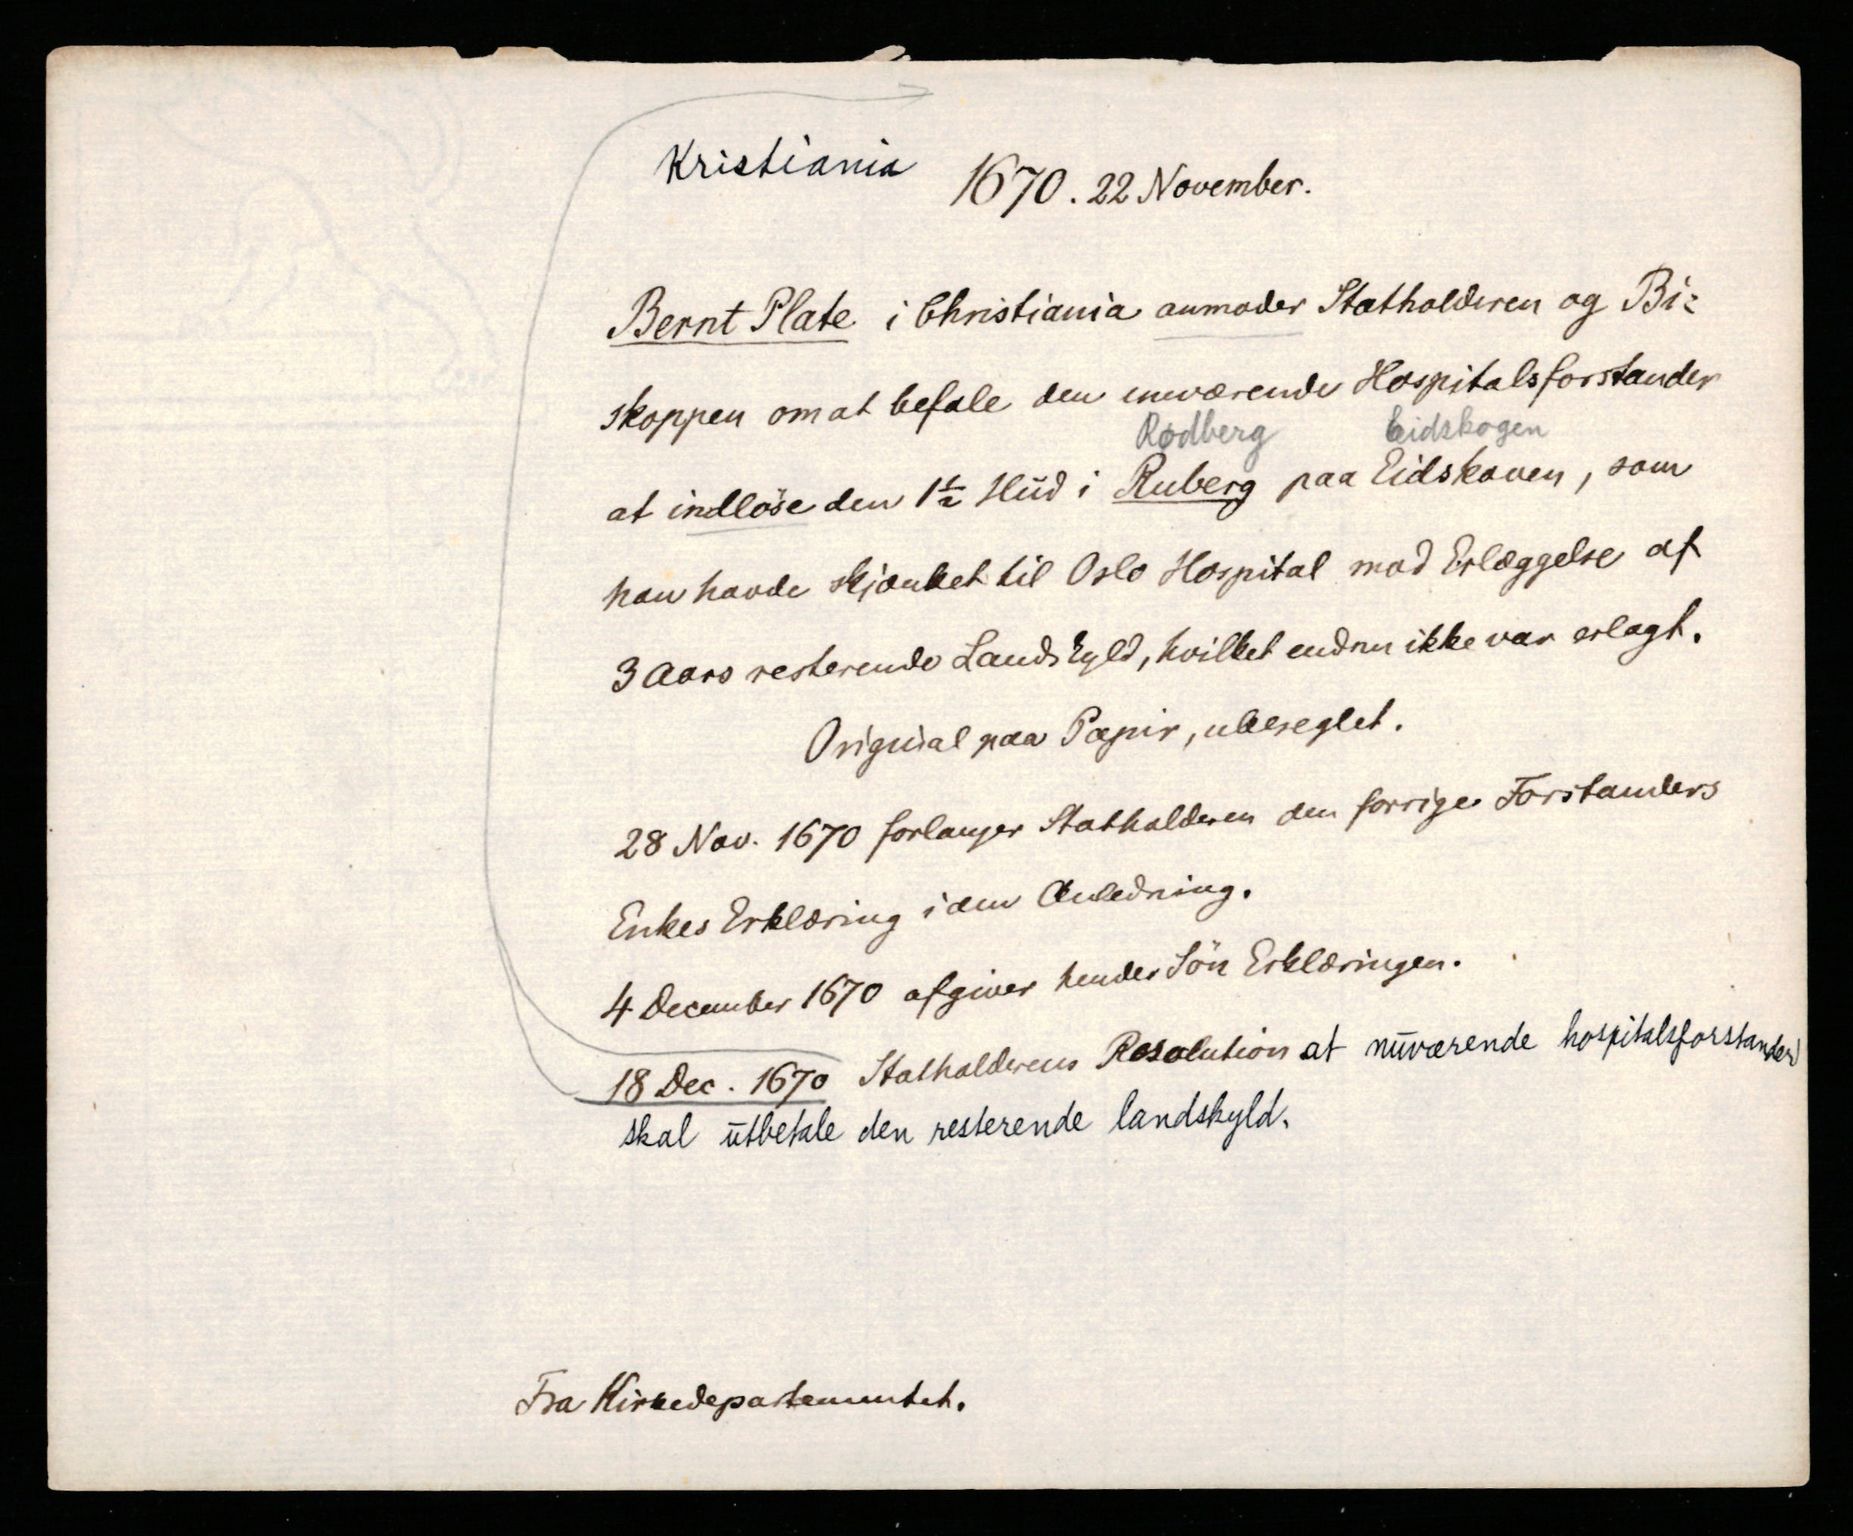 Kristiania 1670. 22 November.
Bernt Plate i Christiania anmoder Statholderen og Bi-
skoppen om at befale den nuværende Hospitalsforstander
Rødberg Eidskogen
at indløse den 1½ Hud i Ruberg paa Eidskoven, som
han havde skjænket til Oslo Hospital mod Erlæggelse af
3 Aars resterende Landskyld, hvilket endnu ikke var erlagt.
Original paa Papir, ubeseglet.
28 Nov. 1670 forlanger Statholderen den forrige Forstanders
Enkes Erklæring i den Anledning.
4 December 1670 afgiver hendes Sön Erklæringen.
18 Dec. 1670 Statholderens Resolution at nuværende hospitalsforstander
skal utbetale den resterende landskyld.
Fra Kirkedepartementet.